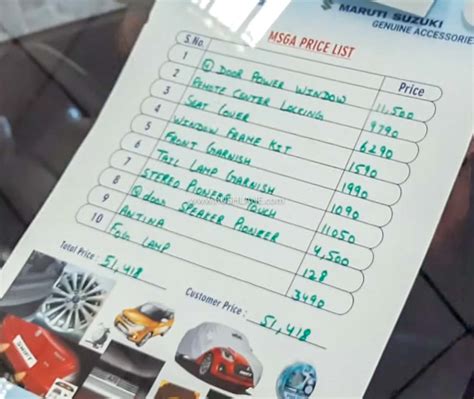 MARUTI SUZUKI
GENUINE ACCESSORIE
MSGA PRICE LIST
S.No. Price
1 DOOR POWER WINDOW 11,500
2 REMOTE CENTER LOCKING 9790
3 SEAT COVER 6290
4 WINDOW FRAME KIT 1590
5 FRONT GARNISH 1990
6 TAIL LAMP GARNISH 1090
7 STEREO PIONEER TOUCH 11050
8 DOOR SPEAKER PIONEER 4,500
9 ANTINA 128
10 FOG LAMP 3490
Total Price : 51,418
Customer Price : 51,418